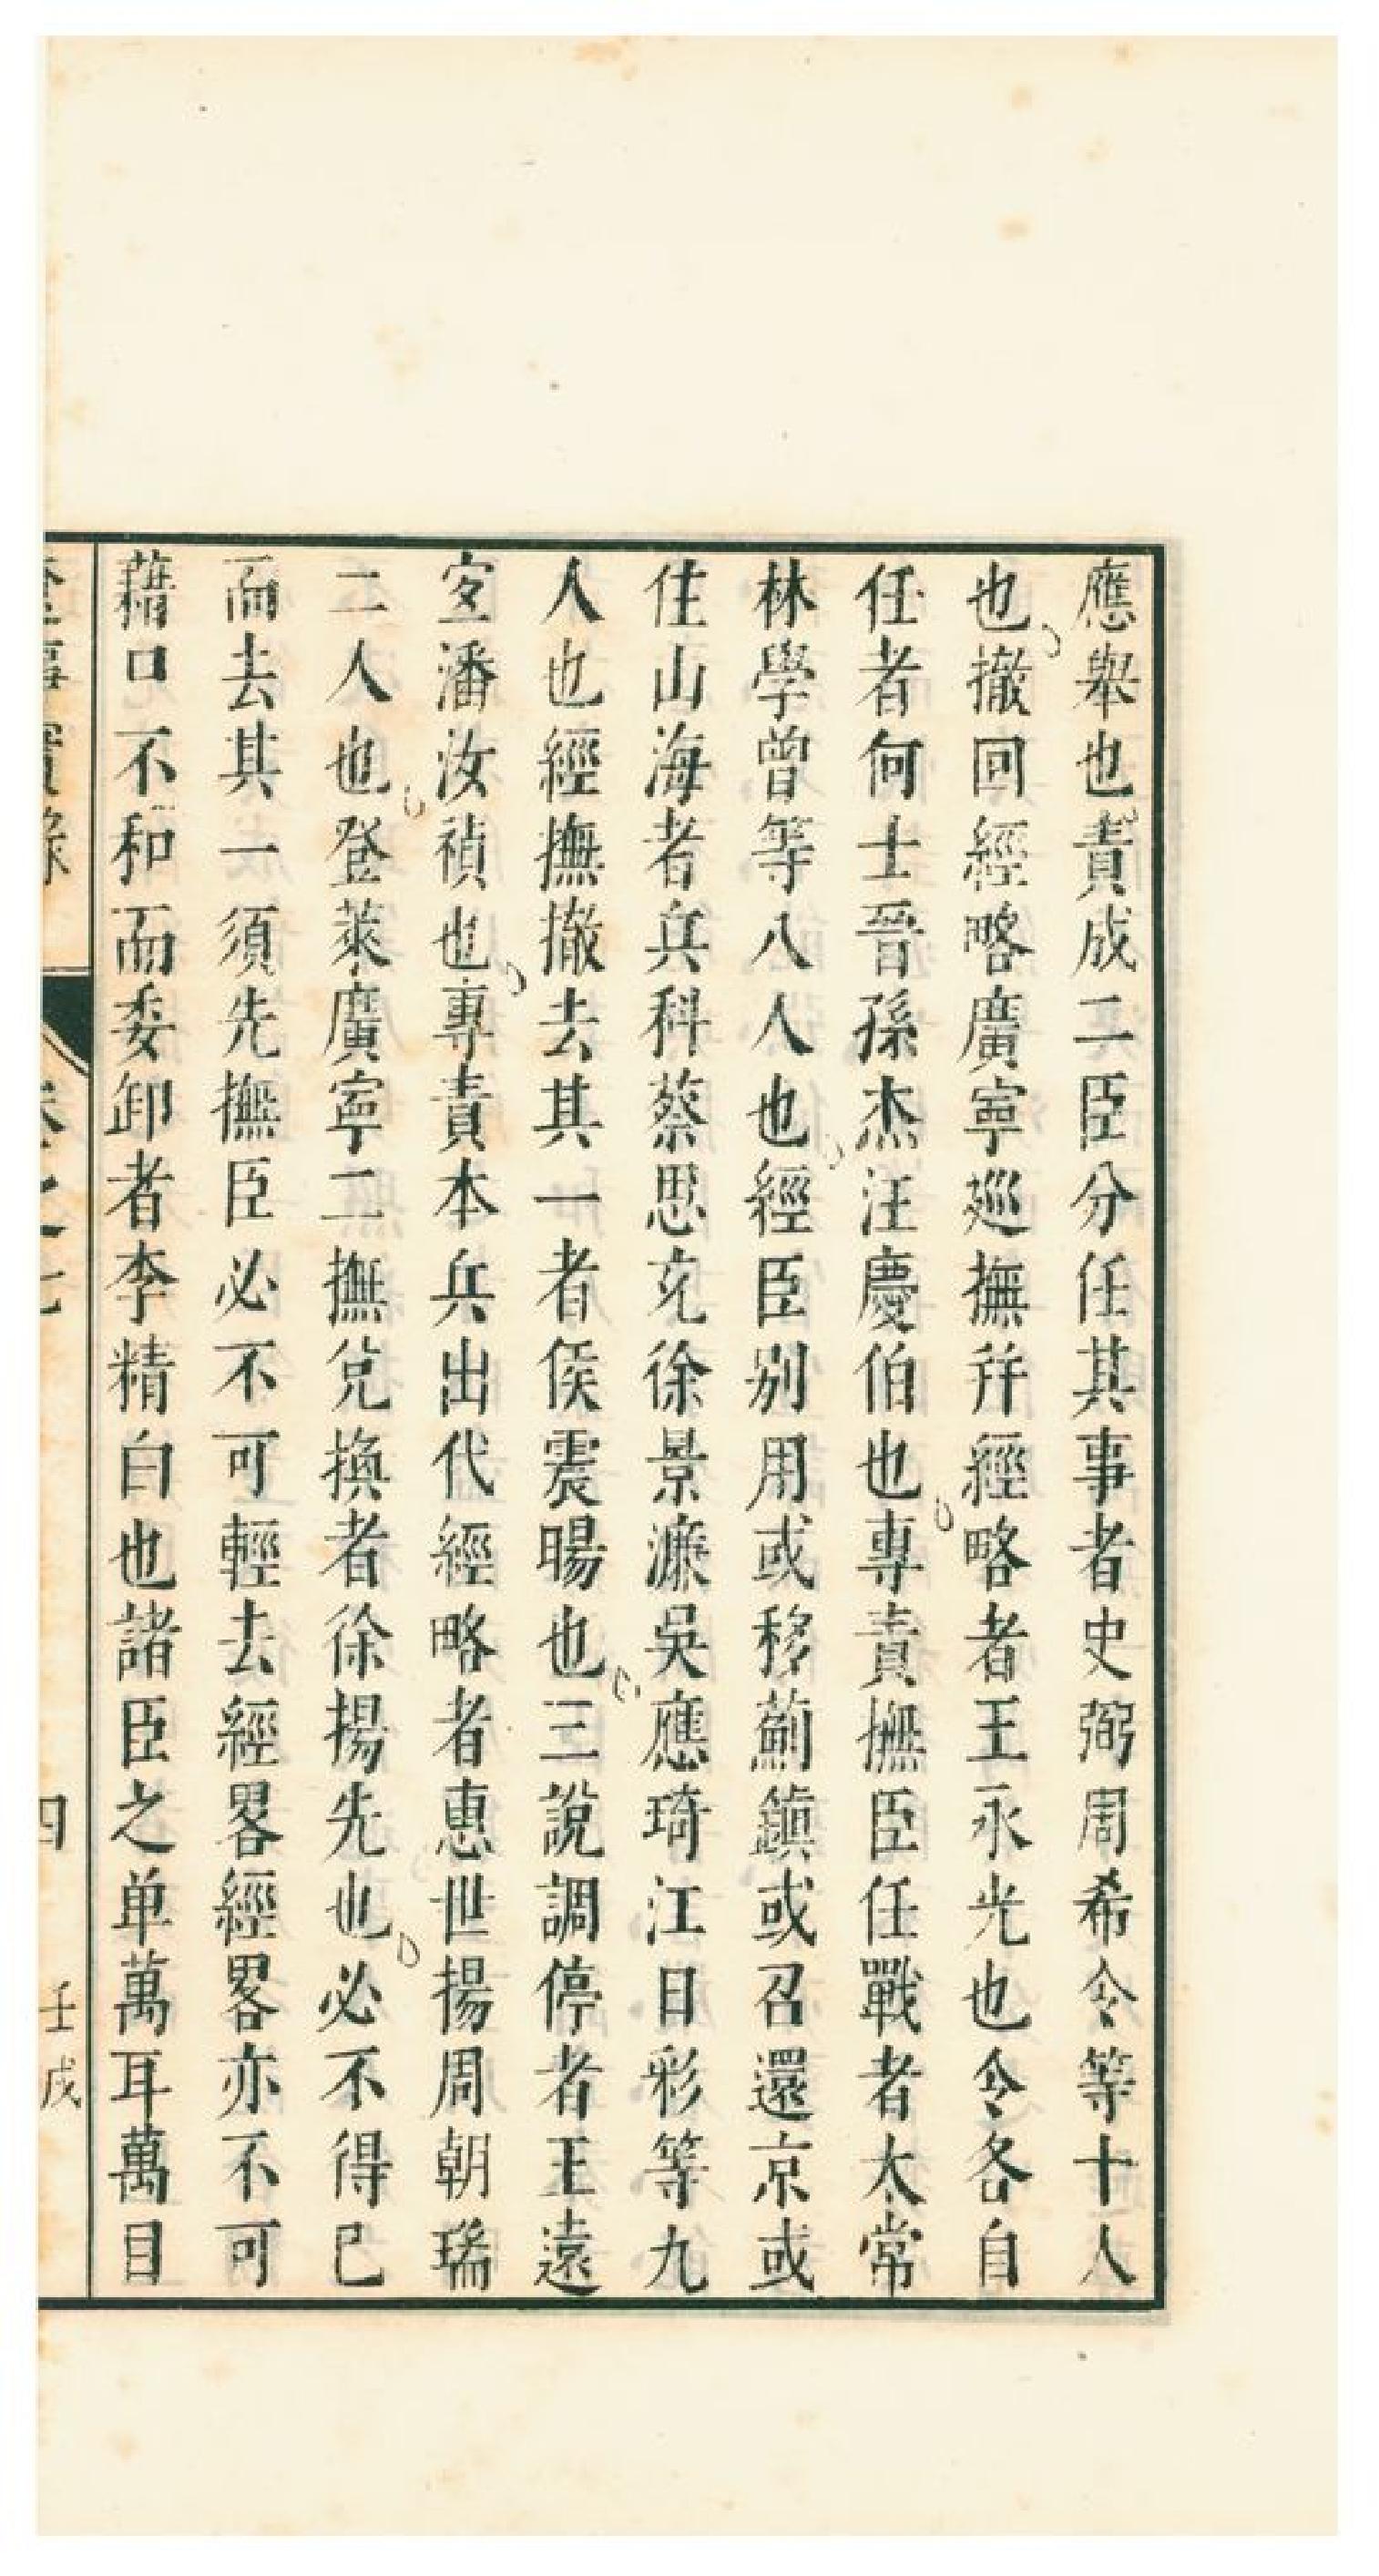 應舉也責成二臣分任其事者史弼周希令等十人
也撤回經略廣寧廵撫幷經略者王永光也令各自
任者何士晉孫杰汪慶伯也專責撫臣任戰者太常
林學曾等八人也經臣别用或移薊鎮或召還京或
住山海者兵科蔡思充徐景濂吳應琦江日彩等九
人也經撫撤去其一者侯震暘也三說調停者王遠
宐潘汝禎也專責本兵出代經略者惠世揚周朝瑞
二人也登萊廣寧二撫兌換者徐揚先也必不得已
而去其一須先撫臣必不可輕去經畧經畧亦不可
藉口不和而委卸者李精白也諸臣之单萬耳萬目
四
壬戌